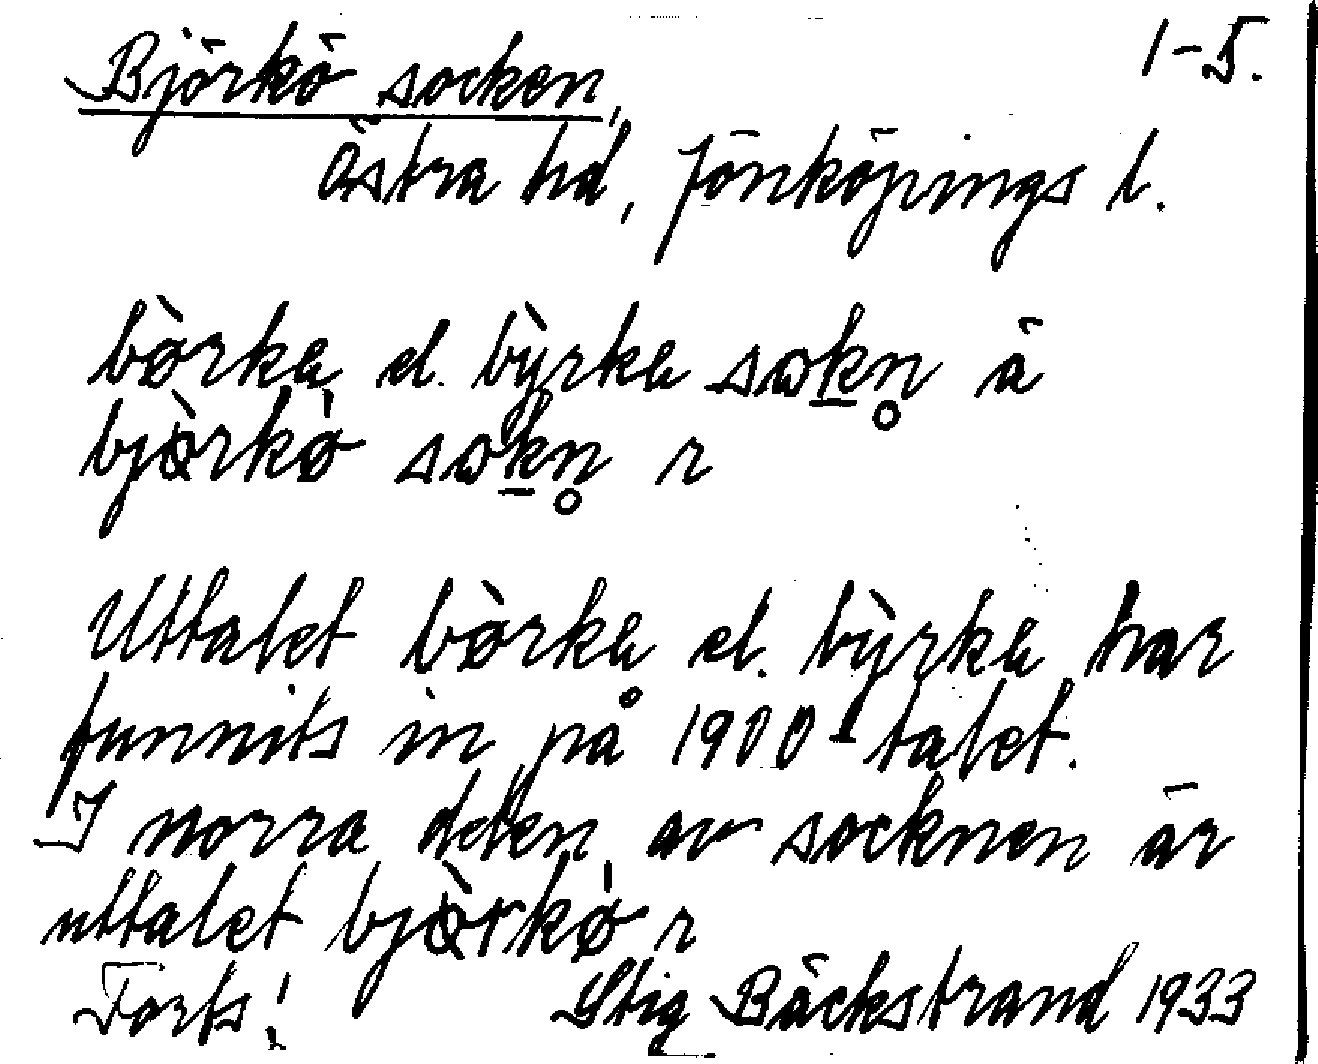 1-5.
Björkö socken,
Östra hd, Jönköpings l.
bò̀rka el. bỳrka sokn̥ ä
bjò̀rkö́ sokn̥ r
Uttalet bòrka el. bỳrka har
funnits in på 1900-talet.
I norra delen av socknen är
uttalet bjòrkö́ r
Forts! Stig Bäckstrand 1933